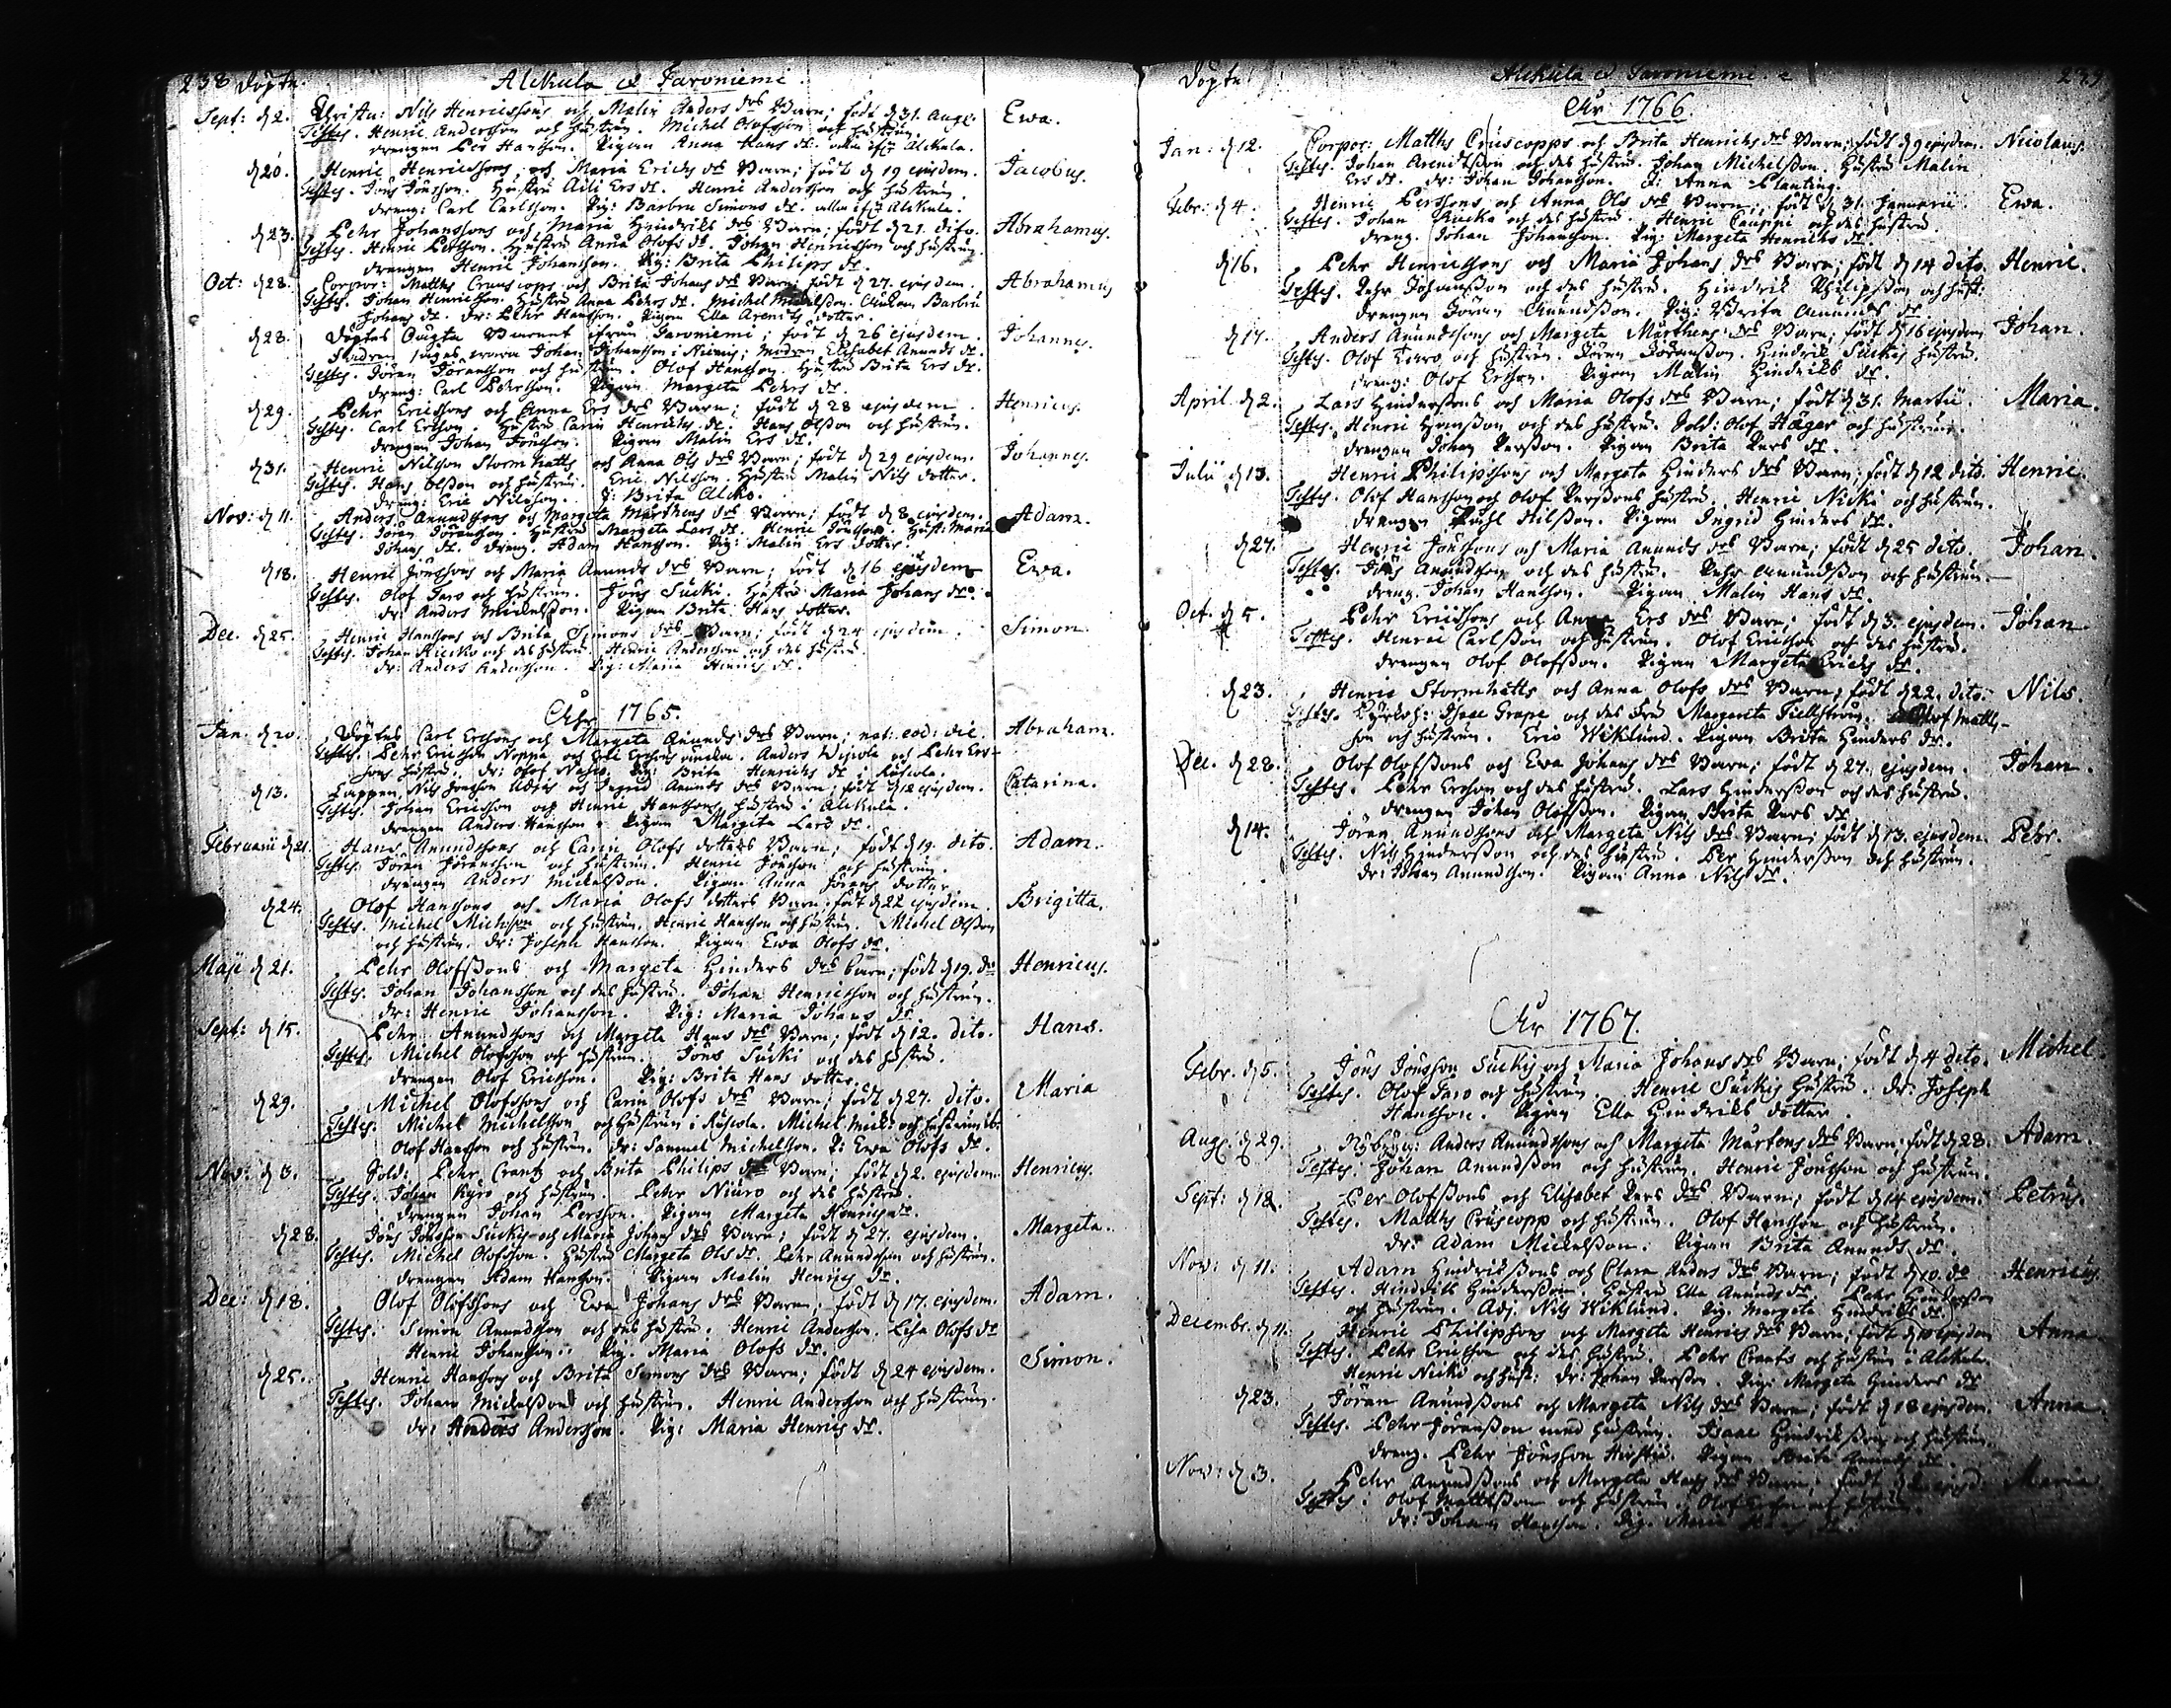 238 Döpte. Alckula & Jaroniemi
Sept: d 2. Christu: Nils Henricssons och Malin Anders drs Barn; födt d 31. Aug: Ewa.
Testes. Henric Andersson och hustrun. Michel Olofsson och hustrun.
drengen Per Hansson. Pigan Anna Hans dr. alla ifrån Alckula.
d 20. Henric Henricssons och Maria Erichs drs Barn; födt d 19 ejusdem. Jacobus.
Testes. Jöns Jönsson. Hustru Aili Ers dr. Henric Andersson och hustrun
dreng: Carl Carlsson. Pig: Barbru Simons dr. alla ifrån Alckula.
d 23. Pehr Johanssons och Maria Hindrichs drs Barn; födt d 21. dito. Abrahamus.
Testes. Henric Persson. Hustru Anna Olofs dr. Johan Henricsson och hustrun.
drengen Henric Johansson. Pig: Brita Philips dr.
Oct: d 28. Corpor: Matths Cruuscops och Brita Johans drs Barn; födt d 27. ejusdem. Abrahamus
Testes. Johan Henricsson. Hustru Anna Pehrs dr. Michel Mickelsson. Änkan Barbru
Johans dr. dr: Pehr Hansson. Pigan Ella Arenits dotter.
d 28. Döptes Oägta Barnet ifrån Jaroniemi; födt d 26 ejusdem. Johannes.
Fadren säges wara Johan Johansson i Niemis; modren Elisabet Anunds dr.
Testes. Jöran Jöransson och hustrun. Olof Hansson. Hustru Brita Ers dr.
dreng: Carl Pehrsson. Pigan Margeta Pehrs dr.
d 29. Pehr Ericssons och Anna Ers drs Barn; födt d 28 ejusdem. Henricus.
Testes. Carl Ersson. Hustru Carin Henrichs dr. Hans Olsson och hustrun.
drengen Johan Jönsson. Pigan Malin Ers dr.
d 31. Henric Nilsson Stormhatts och Anna Ols drs Barn; födt d 29 ejusdem. Johannes.
Testes. Hans Olsson och hustrun. Eric Nilsson. Hustru Malin Nils dotter.
dreng: Eric Nilsson. P: Brita Alcko.
Nov: d 11. Anders Anundssons och Margeta Marthens drs Barn; födt d 8 ejusdem. Adam.
Testes. Jöran Jöransson. Hustru Margeta Lars dr. Henric Jönsson. Hust: Maria
Johans dr. dreng. Adam Hansson. Pig: Malin Ers dotter.
d 18. Henric Jönssons och Maria Anunds drs Barn; födt d 16 ejusdem Ewa.
Testes. Olof Jaro och hustrun. Jöns Sucki. Hustru Maria Johans dr.
dr: Anders Mickelsson. Pigan Brita Hans dotter.
Dec. d 25. Henric Hanssons och Brita Simons drs Barn; födt d 24 ejusdem. Simon.
Testes. Johan Kucko och des hustru. Henric Andersson och des hustru
dr: Anders Andersson. Pig: Maria Henrics dr.
Åhr 1765.
Jan. d 20. Döptes Carl Erssons och Margeta Anunds drs Barn; nat: eod: die. Abraham.
Testes. Pehr Ericsson Noppa och Anders och Pehr Ers-
sons hustru. dr: Olof Pig: Brita Henrichs dr i
d 13. Lappen Nils Jonsson och Ingrid Anunds drs Barn; födt d 12 ejusdem. Catarina.
Testes. Johan Ericsson och Henric Hanssons hustru i Alckula.
drengen Anders Hansson. Pigan Margeta Lars dr.
Februarii d 21. Hans Anundssons och Carin Olofs dotters Barn; födt d 19. dito. Adam.
Testes. Jöran Jöransson och hustrun. Henric Jönsson och hustrun.
drengen Anders Mickelsson. Pigan Anna Jörans dotter
d 24. Olof Hanssons och Maria Olofs dotters Barn födt d 22 ejusdem. Brigitta.
Testes. Michel Michsson och hustrun. Henric Hansson och hustrun. Michel Olsson
och hustrun. dr: Joseph Hansson. Pigan Ewa Olofs dr.
Maji d 21. Pehr Olofssons och Margeta Hinders drs barn; födt d 19. do Henricus.
Testes. Johan Johansson och des hustru. Johan Henricsson och hustrun.
dr: Henric Johansson. Pig: Maria Johans dr.
Sept: d 15. Pehr Anundssons och Margeta Hans drs Barn; födt d 12. dito. Hans.
Testes. Michel Olofsson och hustrun. Jöns Sucki och des hustru.
drengen Olof Ericsson. Pig: Brita Hans dotter.
d 29. Michel Olofssons och Carin Olofs drs Barn; födt d 27. dito. Maria
Testes. Michel Michelsson och hustrun i Michel Mick: och hustrun ib.
Olof Hansson och hustrun. dr: Samuel Michelsson. P: Ewa Olofs dr.
Nov: d 3. Sold: Pehr Crantz och Brita Philips drs Barn; födt d 2. ejusdem. Henricus.
Testes. Johan Kyrö och hustrun. Pehr Niuro och des hustru.
drengen Johan Persson. Pigan Margeta Henrics dr.
d 28. Jöns Jönsson Suckis och Maria Johans drs Barn; födt d 27. ejusdem. Margeta.
Testes. Michel Olofsson. Hustru Margeta Ols dr. Pehr Anundsson och hustrun.
drengen Adam Hansson. Pigan Malin Henrics dr.
Dec: d 18. Olof Olofssons och Ewa Johans drs Barn; födt d 17. ejusdem. Adam.
Testes. Simon Anundsson och des hustru. Henric Andersson. Lisa Olofs dr
Henric Johansson. Pig. Maria Olofs dr.
d 25. Henric Hanssons och Brita Simons drs Barn; födt d 24 ejusdem. Simon.
Testes. Johan Mickelsson och hustrun. Henric Andersson och hustrun.
dr: Anders Andersson. Pig: Maria Henrics dr.
Döpte Alckula & Jaroniemi 239
Åhr 1766.
Jan: d 12. Corpor: Matths Cruscopps och Brita Henrichs drs Barn; födt d 9 ejusdem. Nicolaus.
Testes. Johan Arenitsson och des hustru. Johan Michelsson. Hustru Malin
Ers dr. dr: Johan Johansson. P: Anna Planting.
Febr: d 4. Henric Perssons och Anna Ols drs Barn; födt d 31. Januarii. Ewa.
Testes. Johan Kucko och des hustru. Henric Cauppi och des hustru.
dreng. Johan Johansson. Pig: Margeta Henrichs dr.
d 16. Pehr Henricssons och Maria Johans drs Barn; födt d 14 dito. Henric.
Testes. Pehr Johansson och des hustru. Hindrik Philipsson och hust:
drengen Jöran Anundsson. Pig: Brita Anunds dr.
d 17. Anders Anundssons och Margeta Mårthens drs Barn; födt d 16 ejusdem Johan.
Testes. Olof Jaro och hustrun. Jöran Jöransson. Hindrik Suckis hustru.
dreng: Olof Ersson. Pigan Malin Hindriks dr.
April d 2. Lars Hinderssons och Maria Olofs drs Barn; födt d 31. Martii. Maria.
Testes. Henric Hansson och des hustru. Sold: Olof Häger och hustrun.
drengen Johan Persson. Pigan Brita Pers dr.
Julii d 13. Henric Philipssons och Margeta Hinders drs Barn; födt d 12 dito. Henric.
Testes. Olof Hansson och Olof Perssons hustru. Henric Nicki och hustrun.
drengen Påhl Nilsson. Pigan Ingrid Hinders dr.
d 27. Henric Jönssons och Maria Anunds drs Barn; födt d 25 dito. Johan.
Testes. Jöns Anundsson och des hustru. Pehr Anundsson och hustrun
dreng. Johan Hansson. Pigan Malin Hans dr.
Oct. d 5. Pehr Ericssons och Anna Ers drs Barn; födt d 3. ejusdem. Johan.
Testes. Henric Carlsson och hustrun. Olof Ericsson och des hustru.
drengen Olof Olofsson. Pigan Margeta Erichs dr.
d 23. Henric Stormhatts och Anna Olofs drs Barn; födt d 22. dito. Nils.
Testes. Isaac Grape och des Fru Margareta Fiellström. Olof Matts-
son och hustrun. Eric Wiklund. Pigan Brita Hinders dr.
Dec. d 28. Olof Olofssons och Ewa Johans drs Barn; födt d 27. ejusdem. Johan.
Testes. Pehr Ersson och des hustru. Lars Hindersson och des hustru.
drengen Johan Olofsson. Pigan Brita Pers dr.
d 14. Jöran Anundssons och Margeta Nils drs Barn; födt d 13. ejusdem. Pehr.
Testes. Nils Hindersson och des hustru. Per Hindersson och hustrun.
dr: Johan Anundsson. Pigan Anna Nils dr.
Åhr 1767.
Febr. d 5. Jöns Jönsson Suckis och Maria Johans drs Barn; födt d 4 dito. Michel.
Testes. Olof Jaro och hustrun. Henric Suckis hustru. dr: Joseph
Hansson. Pigan Ella Hindriks dotter.
Aug: d 29. Nybygg: Anders Anundssons och Margeta Mårtens drs Barn; födt d 28. Adam.
Testes. Johan Anundsson och hustrun. Henric Jönsson och hustrun.
Sept: d 18. Per Olofssons och Elisabet Pers drs Barn; födt d 14 ejusdem. Petrus.
Testes. Matths Cruscopp och hustrun. Olof Hansson och hustrun.
dr: Adam Mickelsson. Pigan Brita Anunds dr.
Nov: d 11. Adam Hindrikssons och Clara Anders drs Barn; födt d 10. do Henricus.
Testes. Hindrik Hindersson. Hustru Ella Anunds dr. Pehr Hindersson
och hustrun. Adj. Nils Wiklund. Pig. Margeta Hindriks dr.
Decembr. d 11. Henric Philipssons och Margeta Henrics drs Barn; födt d 10 ejusdem Anna
Testes. Pehr Ericsson och des hustru. Pehr Crants och hustrun i Alckula.
Henric Nicki och hust: dr: Johan Persson. Pig: Margeta Hinders dr
d 23. Jöran Anundssons och Margeta Nils drs Barn; födt d 18 ejusdem. Anna.
Testes. Pehr Jöransson med hustrun. Isaac Hindriksson och hustrun.
dreng. Pehr Jönsson Pigan Brita Anunds dr.
Nov: d 3. Pehr Anundssons och Margeta Hans drs Barn; födt d ejusd. Maria
Testes: Olof Mattsson och hustrun. Olof Ersson och hustrun
dr: Johan Hansson. Pig. Maria Hans dr.